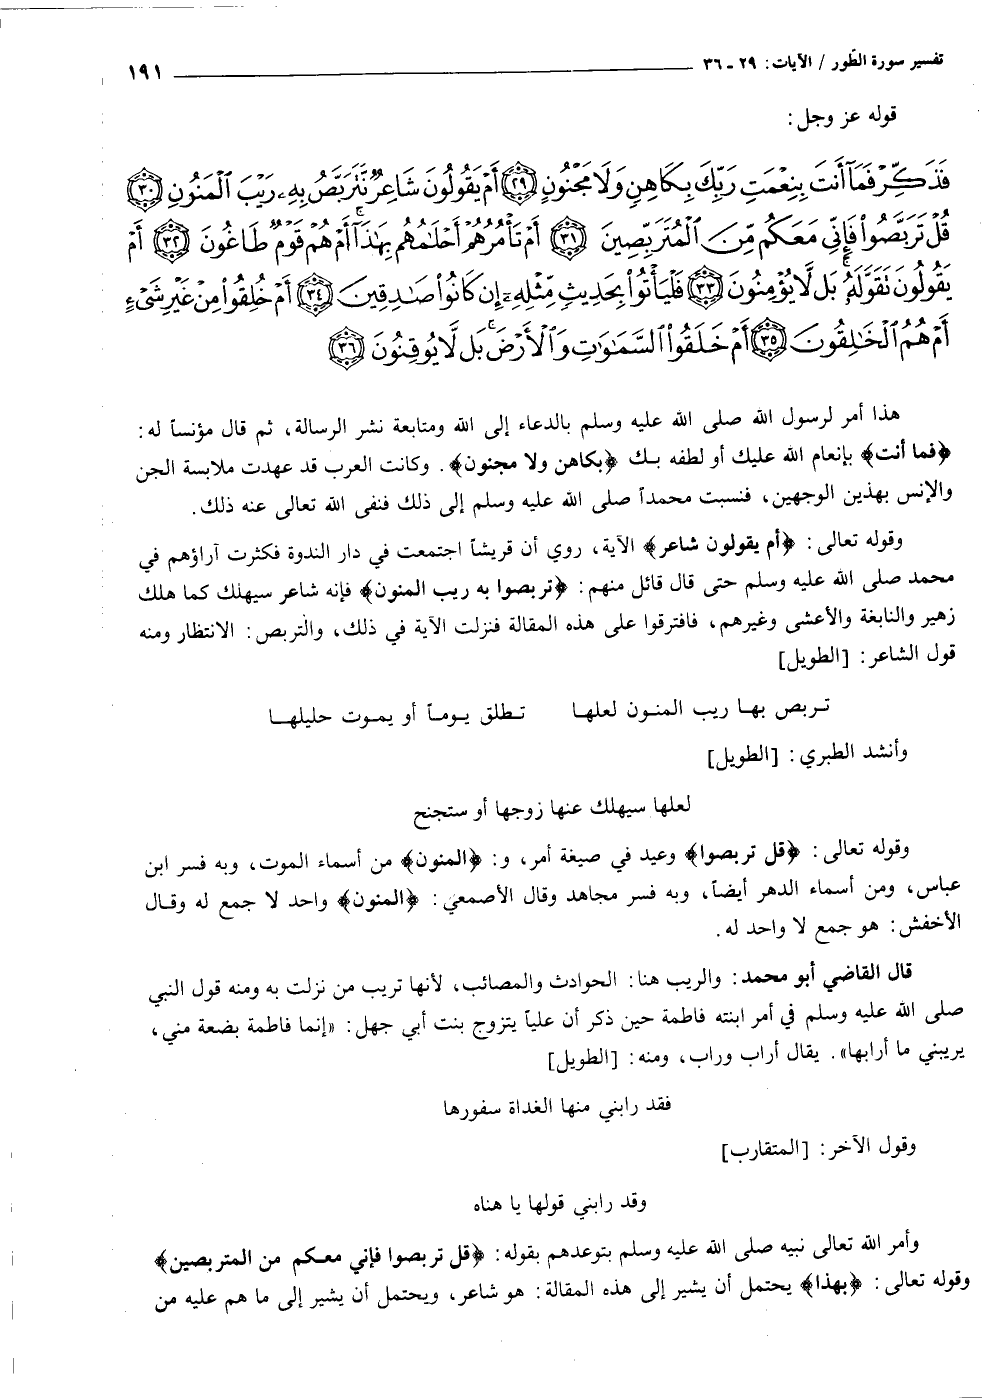 تفسير سورة الطّور / الآيات: ٢٩ - ٣٦ ١٩١
قوله عز وجل:
فَذَكِّرْ فَمَآ أَنتَ بِنِعْمَتِ رَبِّكَ بِكَاهِنٍ وَلَا مَجْنُونٍ ﴿٢٩﴾ أَمْ يَقُولُونَ شَاعِرٌ نَّتَرَبَّصُ بِهِۦ رَيْبَ ٱلْمَنُونِ ﴿٣٠﴾
قُلْ تَرَبَّصُوا۟ فَإِنِّى مَعَكُم مِّنَ ٱلْمُتَرَبِّصِينَ ﴿٣١﴾ أَمْ تَأْمُرُهُمْ أَحْلَـٰمُهُم بِهَـٰذَآ ۚ أَمْ هُمْ قَوْمٌ طَاغُونَ ﴿٣٢﴾ أَمْ
يَقُولُونَ تَقَوَّلَهُۥ ۚ بَل لَّا يُؤْمِنُونَ ﴿٣٣﴾ فَلْيَأْتُوا۟ بِحَدِيثٍ مِّثْلِهِۦٓ إِن كَانُوا۟ صَـٰدِقِينَ ﴿٣٤﴾ أَمْ خُلِقُوا۟ مِنْ غَيْرِ شَىْءٍ
أَمْ هُمُ ٱلْخَـٰلِقُونَ ﴿٣٥﴾ أَمْ خَلَقُوا۟ ٱلسَّمَـٰوَٰتِ وَٱلْأَرْضَ ۚ بَل لَّا يُوقِنُونَ ﴿٣٦﴾
هذا أمر لرسول الله صلى الله عليه وسلم بالدعاء إلى الله ومتابعة نشر الرسالة، ثم قال مؤنساً له:
﴿فما أنت﴾ بإنعام الله عليك أو لطفه بـك ﴿بكاهن ولا مجنون﴾. وكانت العرب قد عهدت ملابسة الجن
والإنس بهذين الوجهين، فنسبت محمداً صلى الله عليه وسلم إلى ذلك فنفى الله تعالى عنه ذلك.
وقوله تعالى: ﴿أم يقولون شاعر﴾ الآية، روي أن قريشاً اجتمعت في دار الندوة فكثرت آراؤهم في
محمد صلى الله عليه وسلم حتى قال قائل منهم: ﴿تربصوا به ريب المنون﴾ فإنه شاعر سيهلك كما هلك
زهير والنابغة والأعشى وغيرهم، فافترقوا على هذه المقالة فنزلت الآية في ذلك، والتربص: الانتظار ومنه
قول الشاعر: [الطويل]
تـربص بهـا ريب المنـون لعلهـا تـطلق يـومـاً أو يمـوت حليلهـا
وأنشد الطبري: [الطويل]
لعلها سيهلك عنها زوجها أو ستجنح
وقوله تعالى: ﴿قل تربصوا﴾ وعيد في صيغة أمر، و: ﴿المنون﴾ من أسماء الموت، وبه فسر ابن
عباس، ومن أسماء الدهر أيضاً، وبه فسر مجاهد وقال الأصمعي: ﴿المنون﴾ واحد لا جمع له وقـال
الأخفش: هو جمع لا واحد له.
قال القاضي أبو محمد: والريب هنا: الحوادث والمصائب، لأنها تريب من نزلت به ومنه قول النبي
صلى الله عليه وسلم في أمر ابنته فاطمة حين ذكر أن علياً يتزوج بنت أبي جهل: «إنما فاطمة بضعة مني،
يريبني ما أرابها». يقال أراب وراب، ومنه: [الطويل]
فقد رابني منها الغداة سفورها
وقول الآخر: [المتقارب]
وقد رابني قولها يا هناه
وأمر الله تعالى نبيه صلى الله عليه وسلم بتوعدهم بقوله: ﴿قل تربصوا فإني معـكم من المتربصين﴾
وقوله تعالى: ﴿بهذا﴾ يحتمل أن يشير إلى هذه المقالة: هو شاعر، ويحتمل أن يشير إلى ما هم عليه من